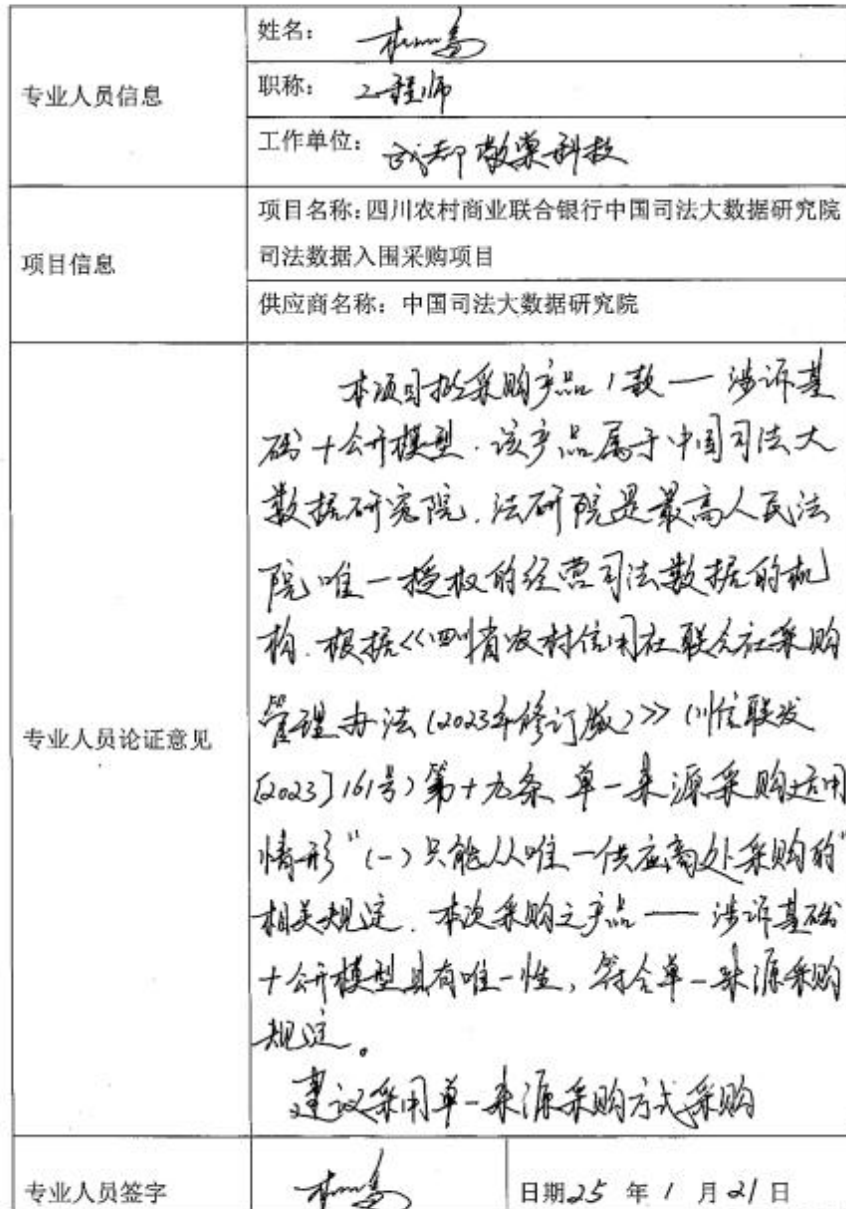 专业人员信息
姓名：
职称： 工程师
工作单位： 成都数巢科技
项目信息
项目名称：四川农村商业联合银行中国司法大数据研究院
司法数据入围采购项目
供应商名称：中国司法大数据研究院
专业人员论证意见
本项目拟采购产品1款一涉诉基
础+公开模型.该产品属于中国司法大
数据研究院.法研院是最高人民法
院唯一授权的经营司法数据的机
构.根据<<四川省农村信用社联合社采购
管理办法(2023年修订版)>>(川信联发
[2023]161号)第十九条单一来源采购适用
情形"(一)只能从唯一供应商处采购的"
相关规定.本次采购之产品——涉诉基础
+公开模型具有唯一性,符合单一来源采购
规定。
建议采用单一来源采购方式采购
专业人员签字
日期25 年 1 月 21 日